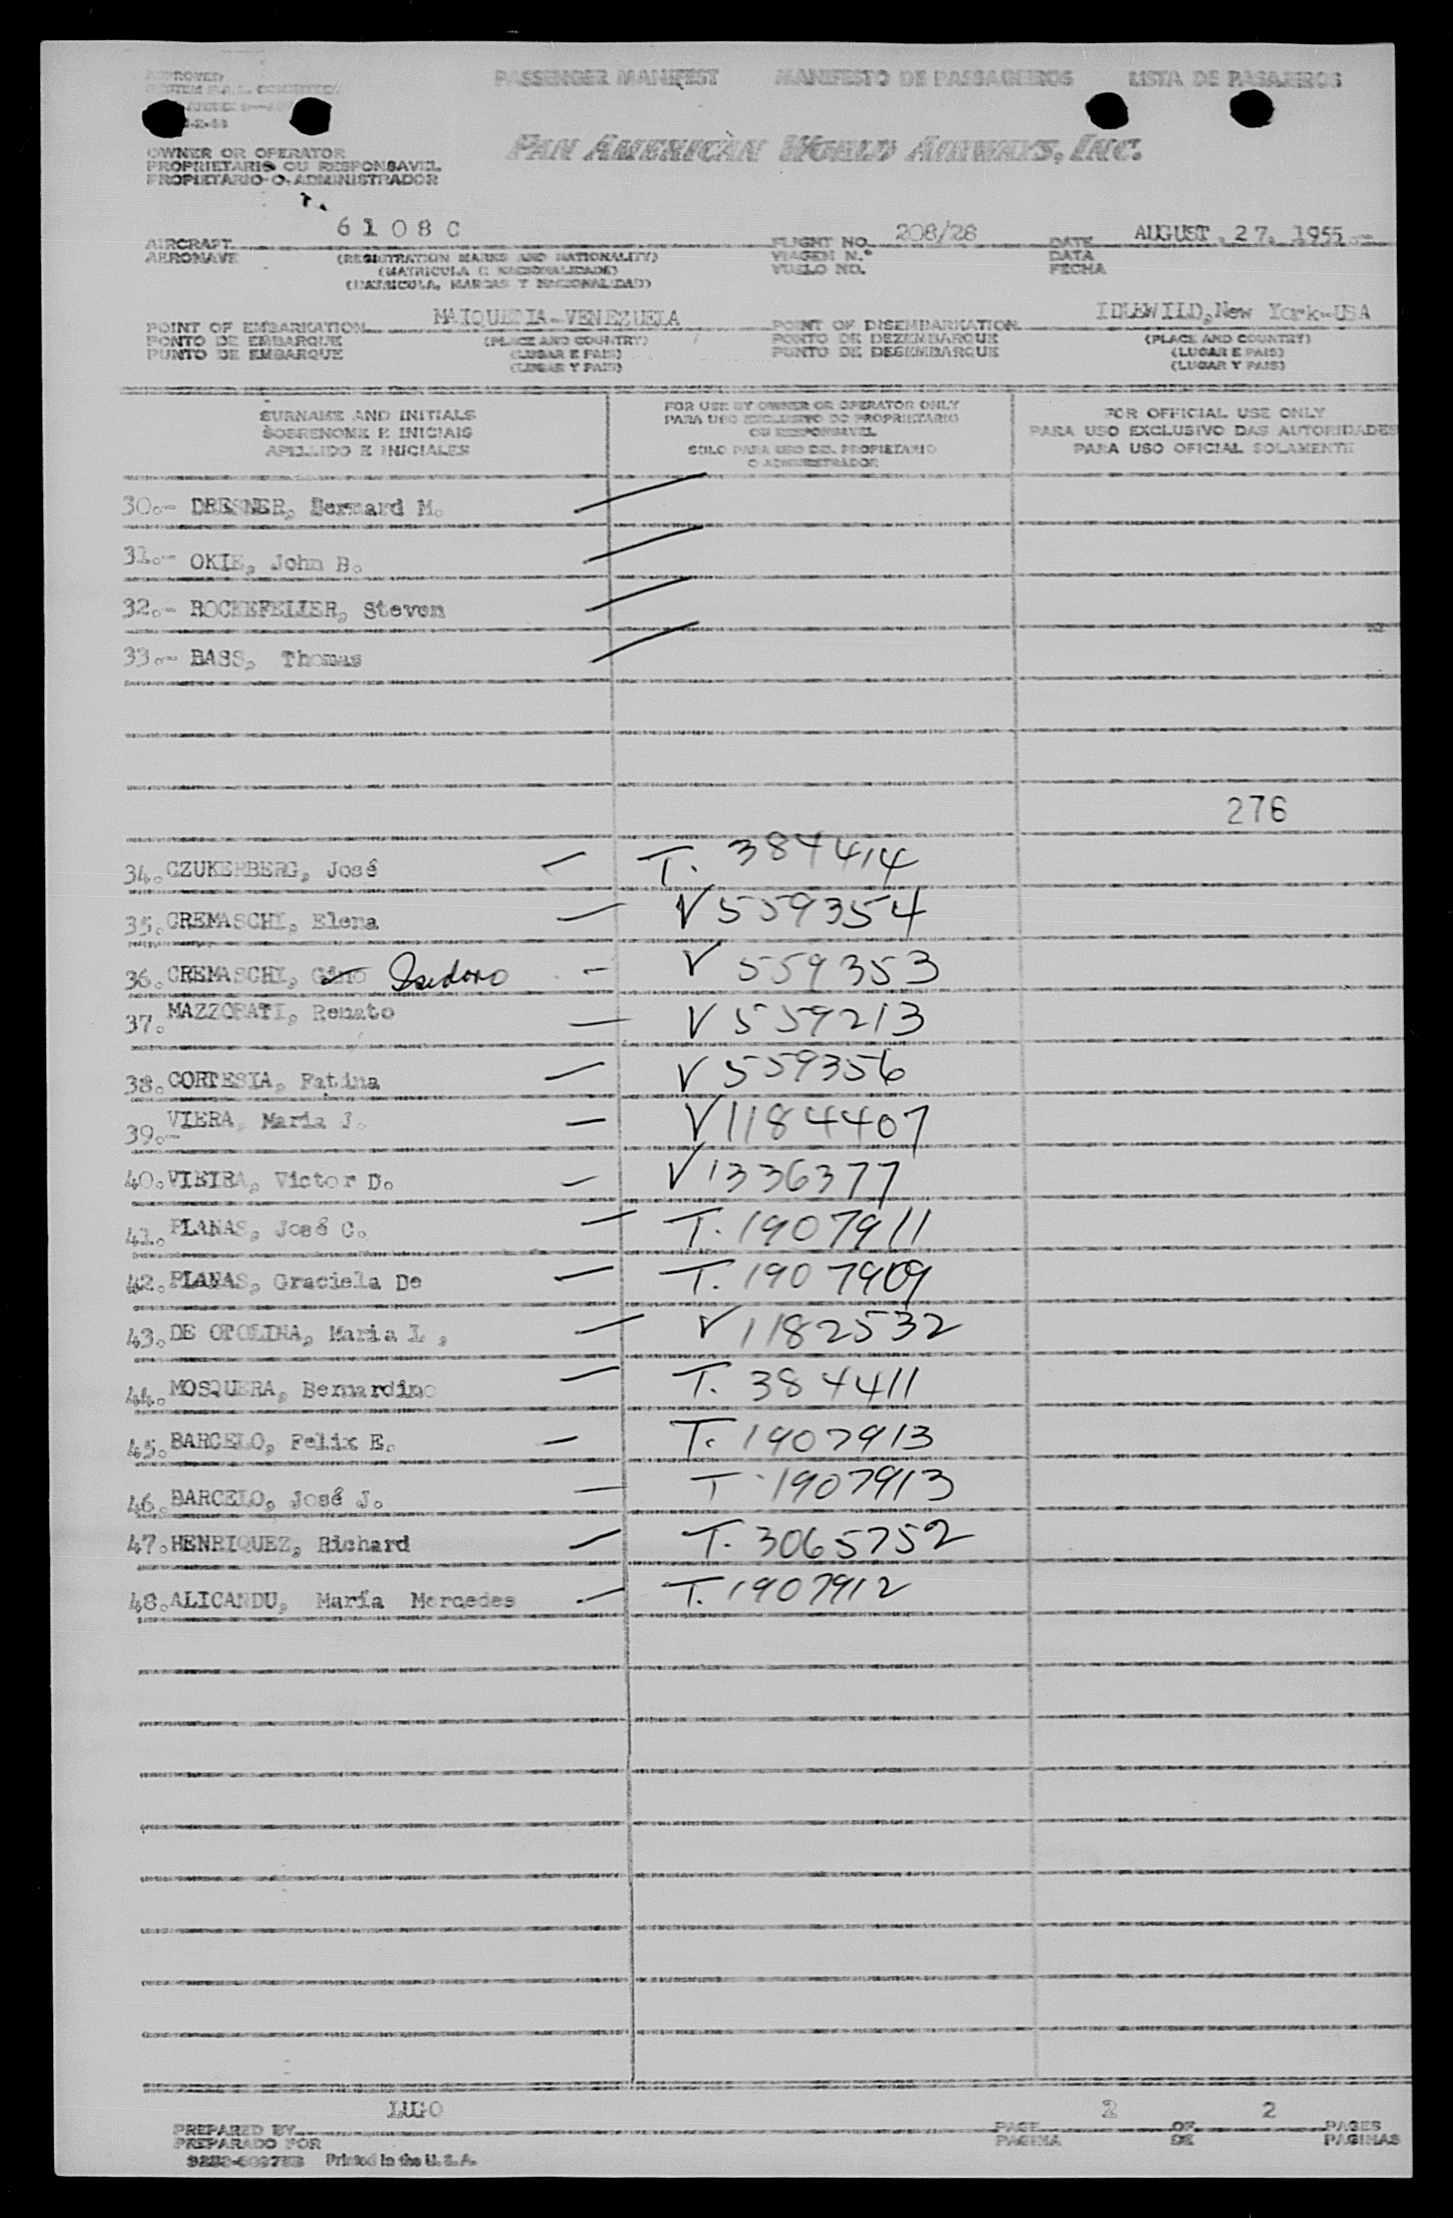 PASSENGER MANIFEST MANIFESTO DE PASSAGEIROS LISTA DE PASAJEROS
APPROVED
PAN AMERICAN WORLD AIRWAYS, INC.
OWNER OR OPERATOR
PROPRIETARIO OU RESPONSAVEL
PROPIETARIO O ADMINISTRADOR
AIRCRAFT 6108C FLIGHT NO. 208/28 DATE AUGUST, 27, 1955.-
AERONAVE (REGISTRATION MARKS AND NATIONALITY) VIAGEM N.º DATA
(MATRICULA E NACIONALIDADE) VUELO NO. FECHA
(MATRICULA, MARCAS Y NACIONALIDAD)
POINT OF EMBARKATION MAIQUETIA-VENEZUELA POINT OF DISEMBARKATION IDLEWILD, New York-USA
PONTO DE EMBARQUE (PLACE AND COUNTRY) PONTO DE DEZEMBARQUE (PLACE AND COUNTRY)
PUNTO DE EMBARQUE (LUGAR E PAIS) PUNTO DE DESEMBARQUE (LUGAR E PAIS)
(LUGAR Y PAIS) (LUGAR Y PAIS)
SURNAME AND INITIALS
SOBRENOME E INICIAIS
APELLIDO E INICIALES
FOR USE BY OWNER OR OPERATOR ONLY
PARA USO EXCLUSIVO DO PROPRIETARIO
OU RESPONSAVEL
SOLO PARA USO DEL PROPIETARIO
O ADMINISTRADOR
FOR OFFICIAL USE ONLY
PARA USO EXCLUSIVO DAS AUTORIDADES
PARA USO OFICIAL SOLAMENTE
30.- DRESNER, Bernard M.
31.- OKIE, John B.
32.- ROCKEFELLER, Steven
33.- BASS, Thomas
276
34. CZUKERBERG, José — T. 384414
35. CREMASCHI, Elena — V 559354
36. CREMASCHI, Gino Isidoro — V 559353
37. MAZZORATI, Renato — V 559213
38. CORTESIA, Fatima — V 559356
39.- VIERA, Maria J. — V 1184407
40. VIEIRA, Victor D. — V 1336377
41. PLANAS, José C. — T. 1907911
42. PLANAS, Graciela De — T. 1907909
43. DE OTOLINA, Maria L, — V 1182532
44. MOSQUERA, Bernardino — T. 384411
45. BARCELO, Felix E. — T. 1907913
46. BARCELO, José J. — T 1907913
47. HENRIQUEZ, Richard — T. 3065752
48. ALICANDU, María Mercedes — T. 1907912
PREPARED BY LUGO PAGE 2 OF 2 PAGES
PREPARADO POR PAGINA DE PAGINAS
Printed in the U.S.A.